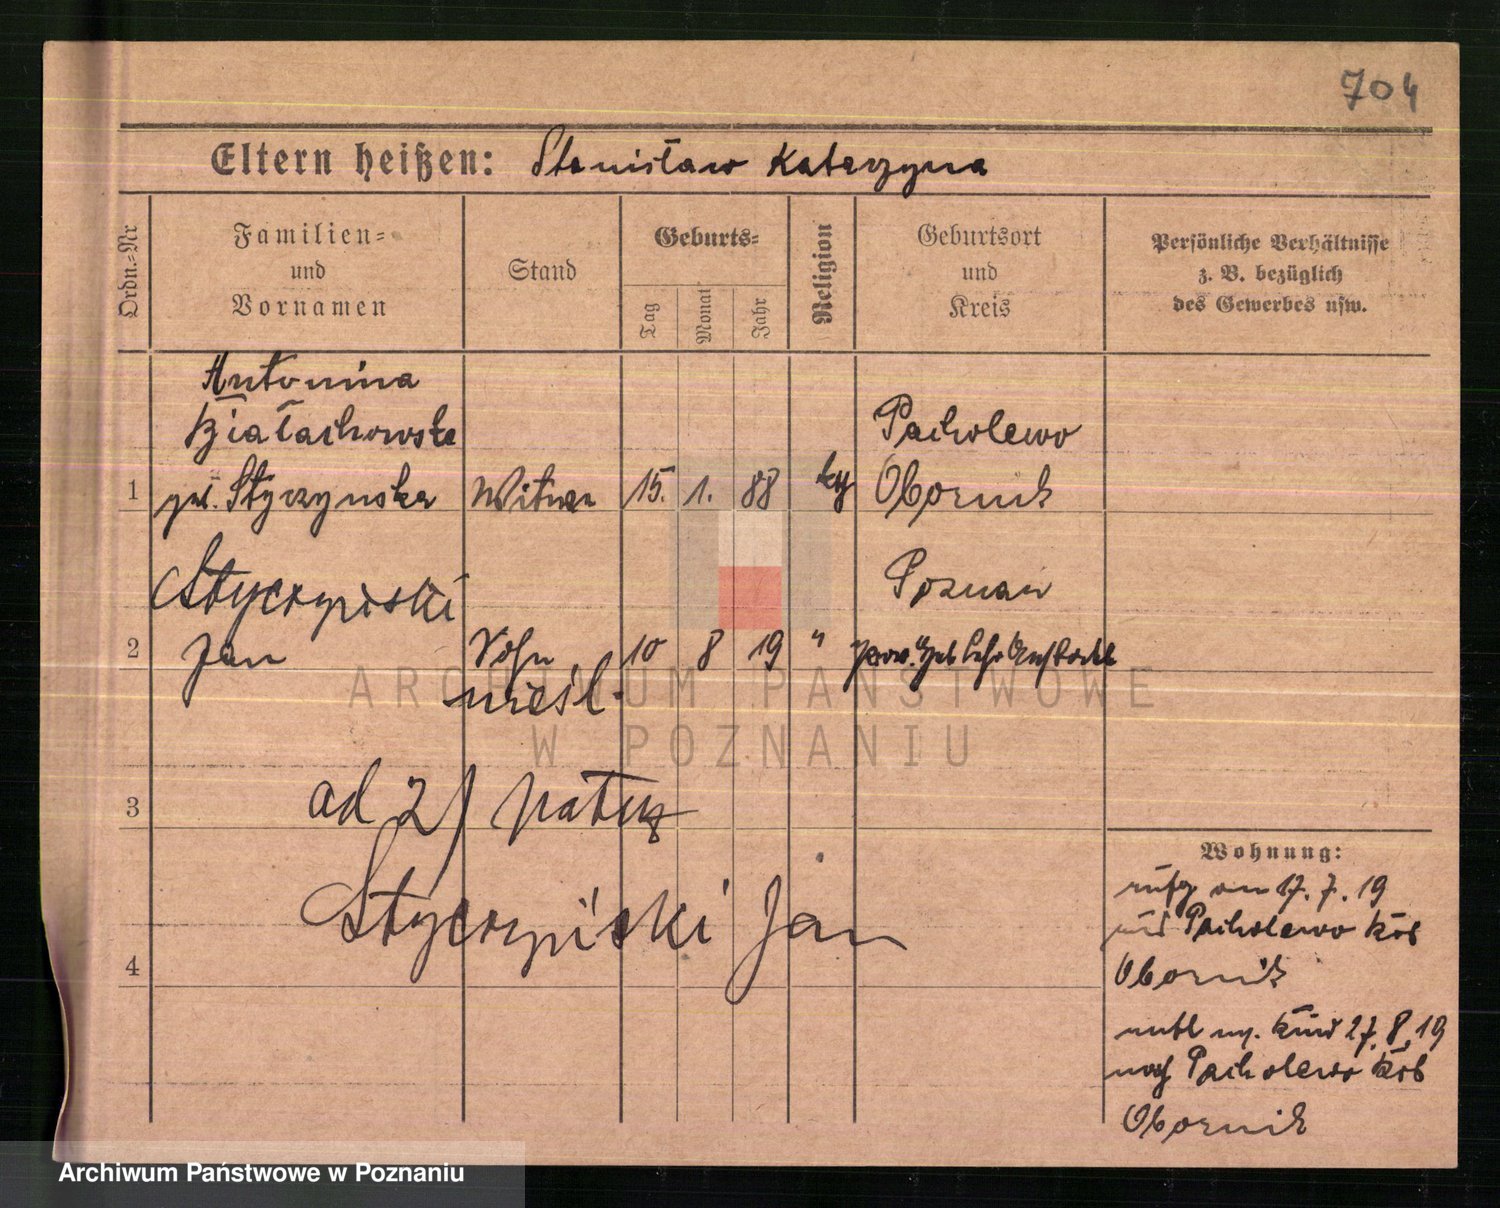 704
Eltern heißen: Stanisław Katarzyna
Ordn.-Nr
Familien-
und
Vornamen
Stand
Geburts-
Tag
Monat
Jahr
Religion
Geburtsort
und
Kreis
Persönliche Verhältnisse
z. B. bezüglich
des Gewerbes usw.
Antonina
Białachowska
1 geb. Styczynska Witwe 15. 1. 88
Pacholewo
Obornik
Styczyński
2 Jan Sohn 10 8 19 "
Poznań
prow. Heb Lehr Anstalt
nieśl.
3
ad 2)
Styczyński Jan
4
Wohnung:
17. 7. 19
Pacholewo Krs
Obornik
Kind 27. 8. 19
nach Pacholewo Krs
Obornik
ARCHIWUM PAŃSTWOWE
W POZNANIU
Archiwum Państwowe w Poznaniu